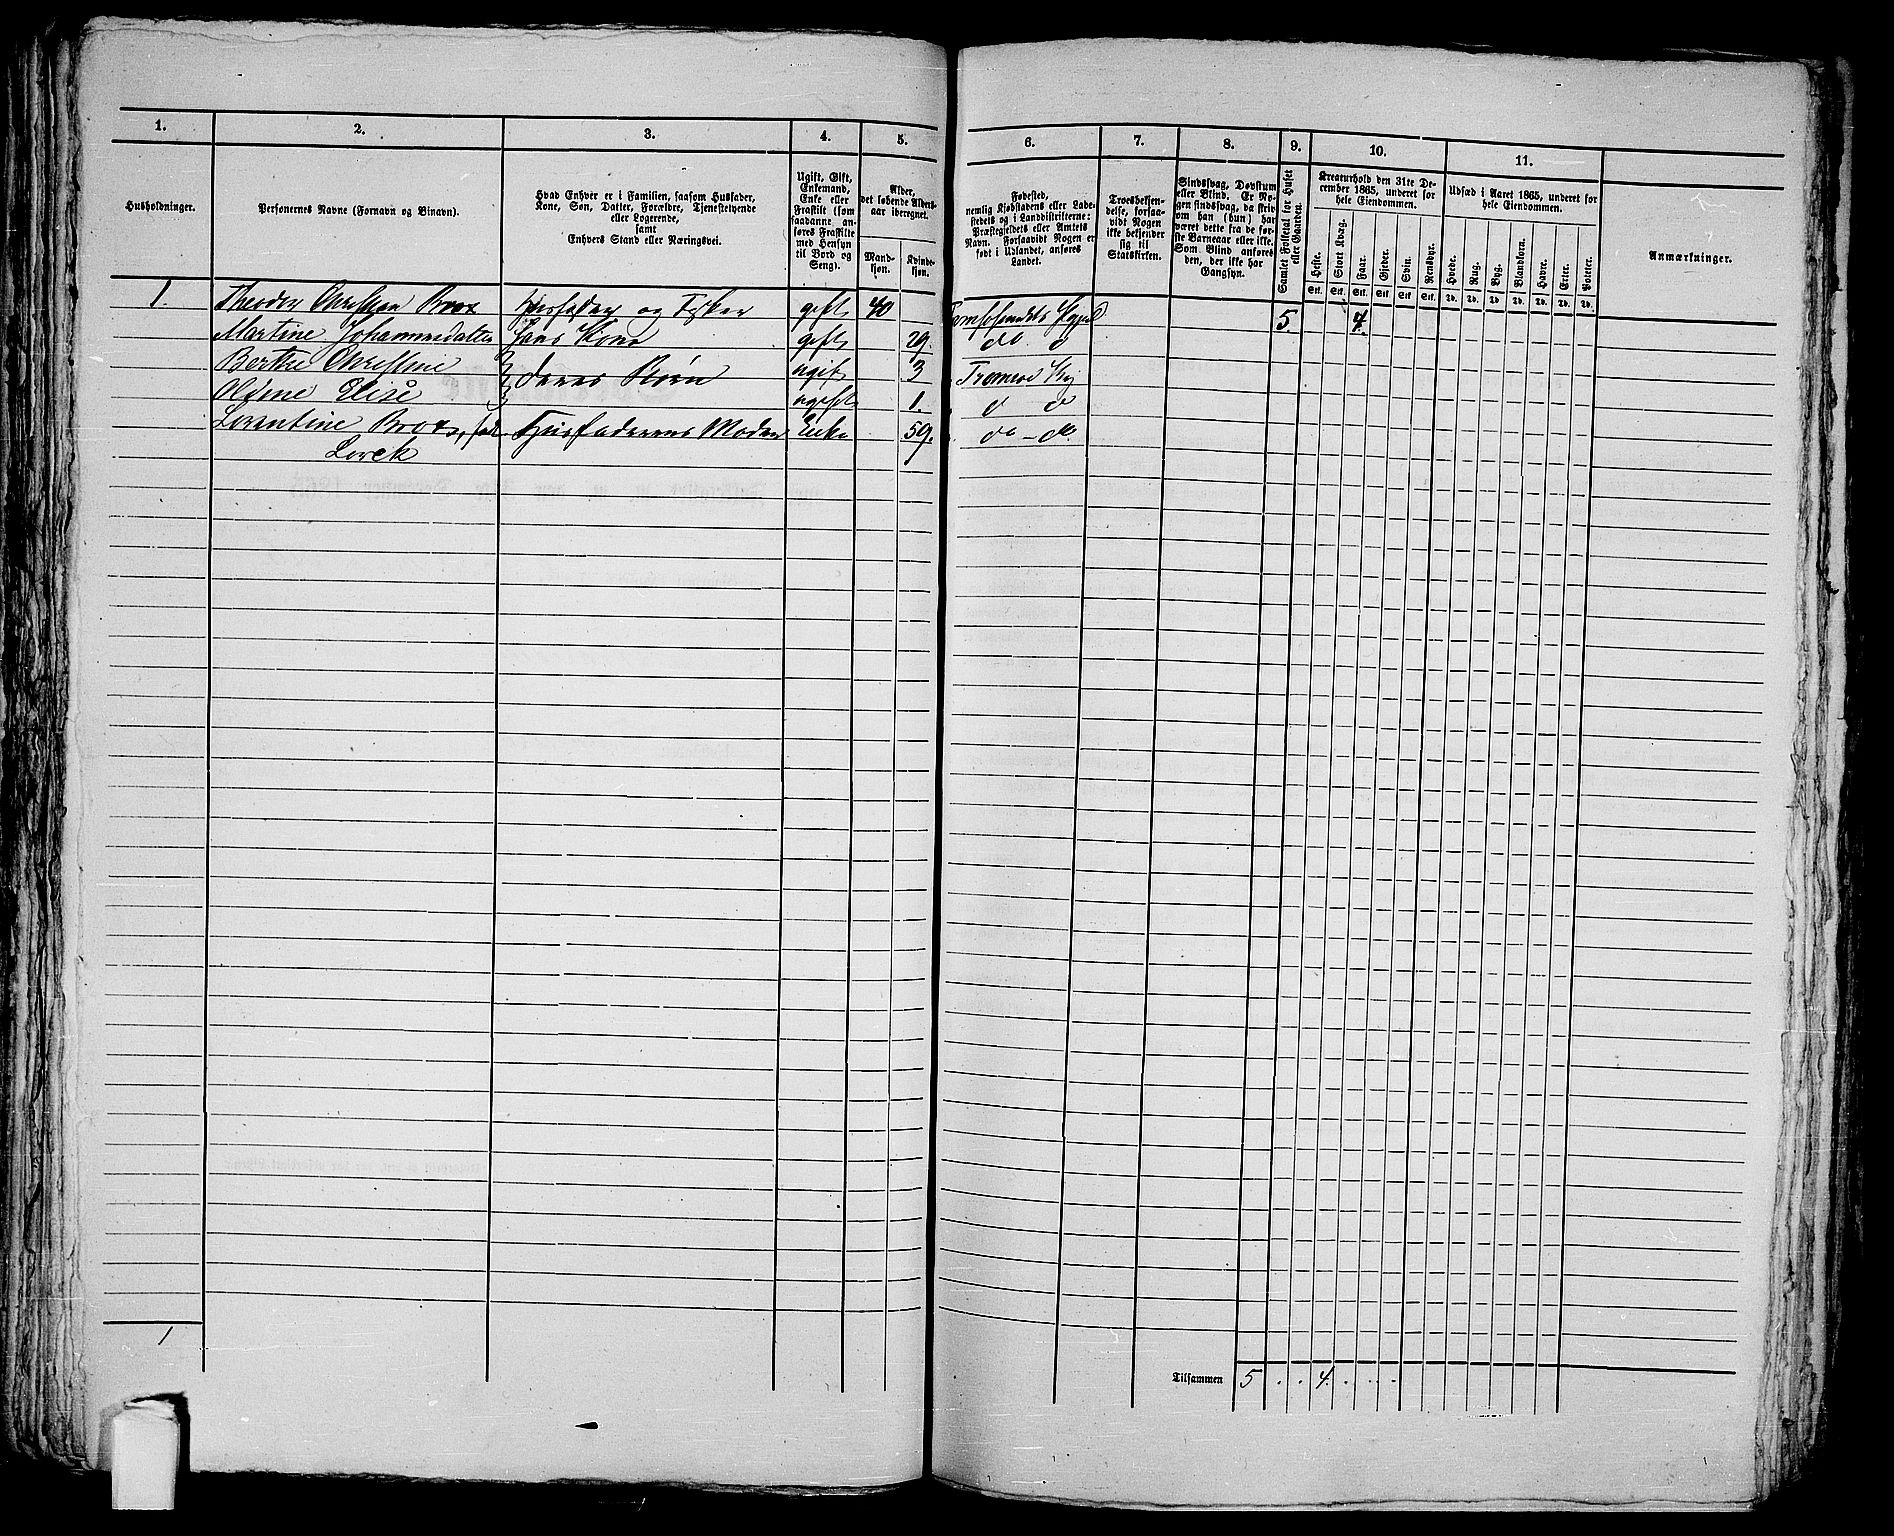 1. 2. 3. 4. 5. 6. 7. 8. 9. 10. 11.
Husholdninger.
Personernes Navne (Fornavn og Binavn).
Hvad Enhver er i Familien, saasom Husfader,
Kone, Søn, Datter, Forældre, Tjenestetyende
eller Logerende,
samt
Enhvers Stand eller Næringsvei.
Ugift, Gift,
Enkemand,
Enke eller
Fraskilt (som
saadanne an-
føres Fraskilte
med Hensyn
til Bord og
Seng).
Alder,
det løbende Alders-
aar iberegnet.
Mand-
kjøn.
Kvinde-
kjøn.
Fødested,
nemlig Kjøbstadens eller Lade-
stedets og i Landdistrikterne:
Præstegjeldets eller Amtets
Navn. Forsaavidt Nogen er
født i Udlandet, anføres
Landet.
Troesbekjen-
delse, forsaa-
vidt Nogen
ikke bekjender
sig til
Statskirken.
Sindssvag, Døvstum
eller Blind. Er No-
gen sindssvag, da skriv
om han (hun) har
været dette fra de før-
ste Barneaar eller ikke.
Som Blind anføres
den, der ikke har
Gangsyn.
Samlet Folketal for Huset
eller Gaarden.
Kreaturhold den 31te De-
cember 1865, underet for
hele Eiendommen.
Heste. Stort Kvæg. Faar. Gjeder. Svin. Rensdyr.
Stk. Stk. Stk. Stk. Stk. Stk.
Udsæd i Aaret 1865, underet for
hele Eiendommen.
Hvede. Rug. Byg. Blandkorn. Havre. Erter. Poteter.
Td. Td. Td. Td. Td. Td. Td.
Anmærkninger.
1. Theodor Christian Brox Husfader og Fisker gift 40 5. 4.
Martine Johannesdatter Hans Kone gift 29. do do
Berthe Christine deres Børn ugift 3 Tromsø
Oldine Elise ugift 1. do do
Lorentine Brox, Husfaderens Moder Enke 59. do - do
Lorck
1
Tilsammen 5 . . 4 . . .